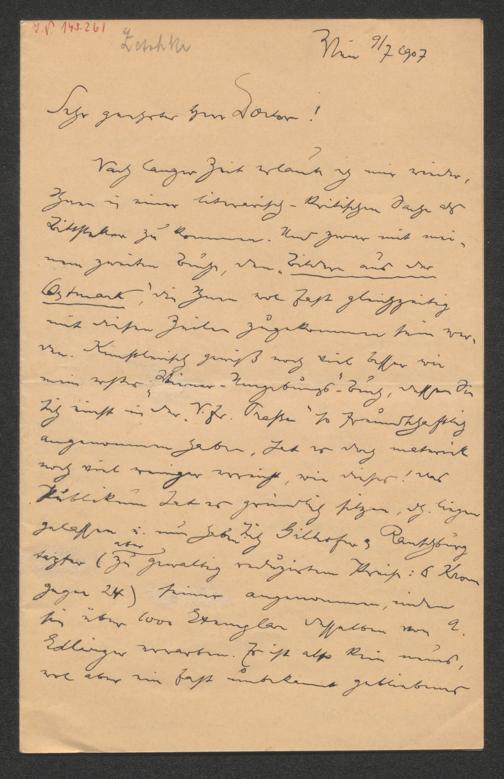 J.N. 148.261
Wien 9/7 1907
Sehr geehrter Herr Doctor!
Nach langer Zeit erlaub ich mir wieder,
Ihnen in einer literarisch-kritischen Sache als
Bittsteller zu kommen. Und zwar mit mei-
nem zweiten Buche, den „Bildern aus der
Ostmark“, die Ihnen wol fast gleichzeitig
mit diesen Zeilen zugekommen sein wer-
den. Künstlerisch gewiß noch viel besser wie
mein erstes „Wiener-Umgebungs“-Buch, dessen Sie
sich einst in der „N. Fr. Presse“ so freundschaftlich
angenommen haben, hat es doch materiell
noch viel weniger erreicht, wie dieses! Das
Publikum hat es gründlich sitzen, d. h. liegen
gelassen u. nun haben sich Gilhofer & Ranschburg
(zu gewaltig reduzirtem Preise: 6 Kronen
gegen 24) seiner angenommen, indem
sie über 1000 Exemplare desselben von A.
Edlinger erwarben. Es ist also kein neues,
wol aber ein fast unbekannt gebliebenes